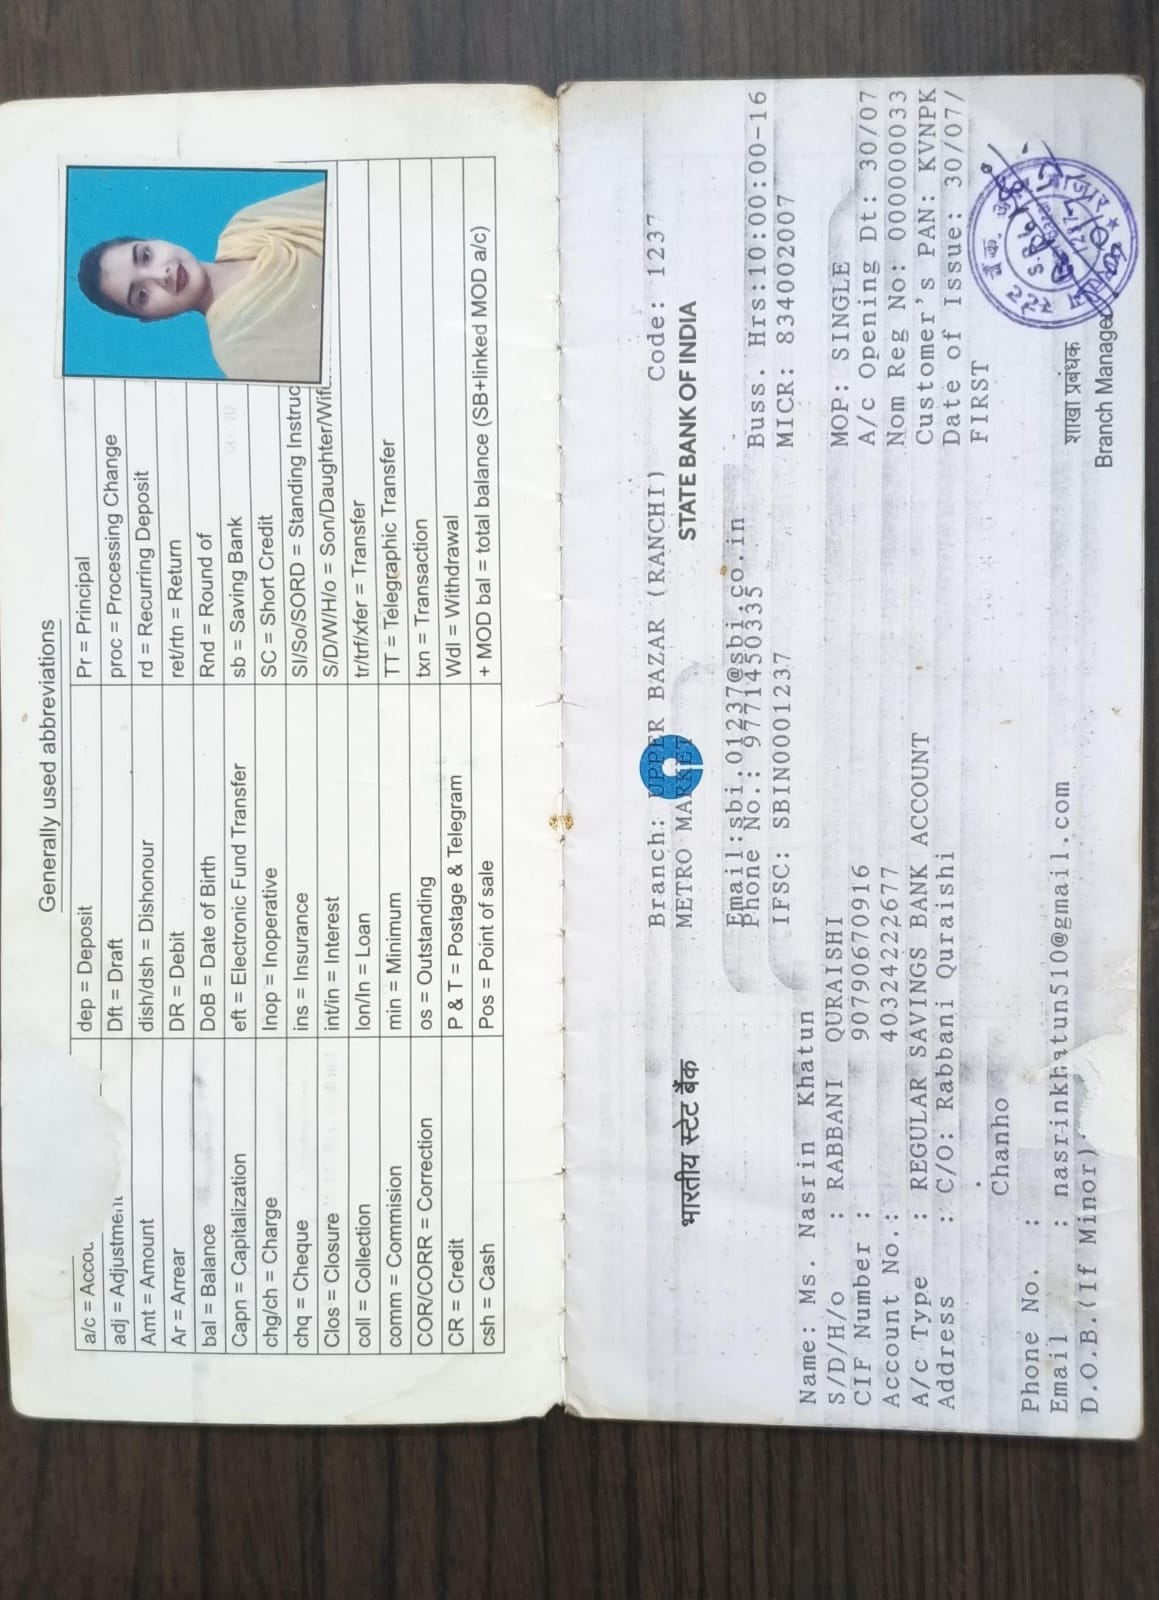 Generally used abbreviations
a/c = Accou
dep = Deposit
Pr = Principal
adj = Adjustment
Dft = Draft
proc = Processing Change
Amt = Amount
dish/dsh = Dishonour
rd = Recurring Deposit
Ar = Arrear
DR = Debit
ret/rtn = Return
bal = Balance
DoB = Date of Birth
Rnd = Round of
Capn = Capitalization
eft = Electronic Fund Transfer
sb = Saving Bank
chg/ch = Charge
Inop = Inoperative
SC = Short Credit
chq = Cheque
ins = Insurance
SI/So/SORD = Standing Instruc
Clos = Closure
int/in = Interest
S/D/W/H/o = Son/Daughter/Wife
coll = Collection
lon/ln = Loan
tr/trf/xfer = Transfer
comm = Commision
min = Minimum
TT = Telegraphic Transfer
COR/CORR = Correction
os = Outstanding
txn = Transaction
CR = Credit
P & T = Postage & Telegram
Wdl = Withdrawal
csh = Cash
Pos = Point of sale
+ MOD bal = total balance (SB+linked MOD a/c)
Branch: UPPER BAZAR (RANCHI) Code: 1237
METRO MARKET
भारतीय स्टेट बैंक STATE BANK OF INDIA
Email:sbi.01237@sbi.co.in
Phone No.: 9771450335 Buss. Hrs:10:00:00-16
IFSC: SBIN0001237 MICR: 834002007
Name: Ms. Nasrin Khatun
S/D/H/o : RABBANI QURAISHI MOP: SINGLE
CIF Number : 90790670916 A/c Opening Dt: 30/07
Account No.: 40324222677 Nom Reg No: 0000000033
A/c Type : REGULAR SAVINGS BANK ACCOUNT Customer's PAN: KVNPK
Address : C/O: Rabbani Quraishi Date of Issue: 30/07/
. FIRST
Chanho
Phone No. :
Email : nasrinkhatun510@gmail.com
D.O.B.(If Minor)
शाखा प्रबंधक
Branch Manager